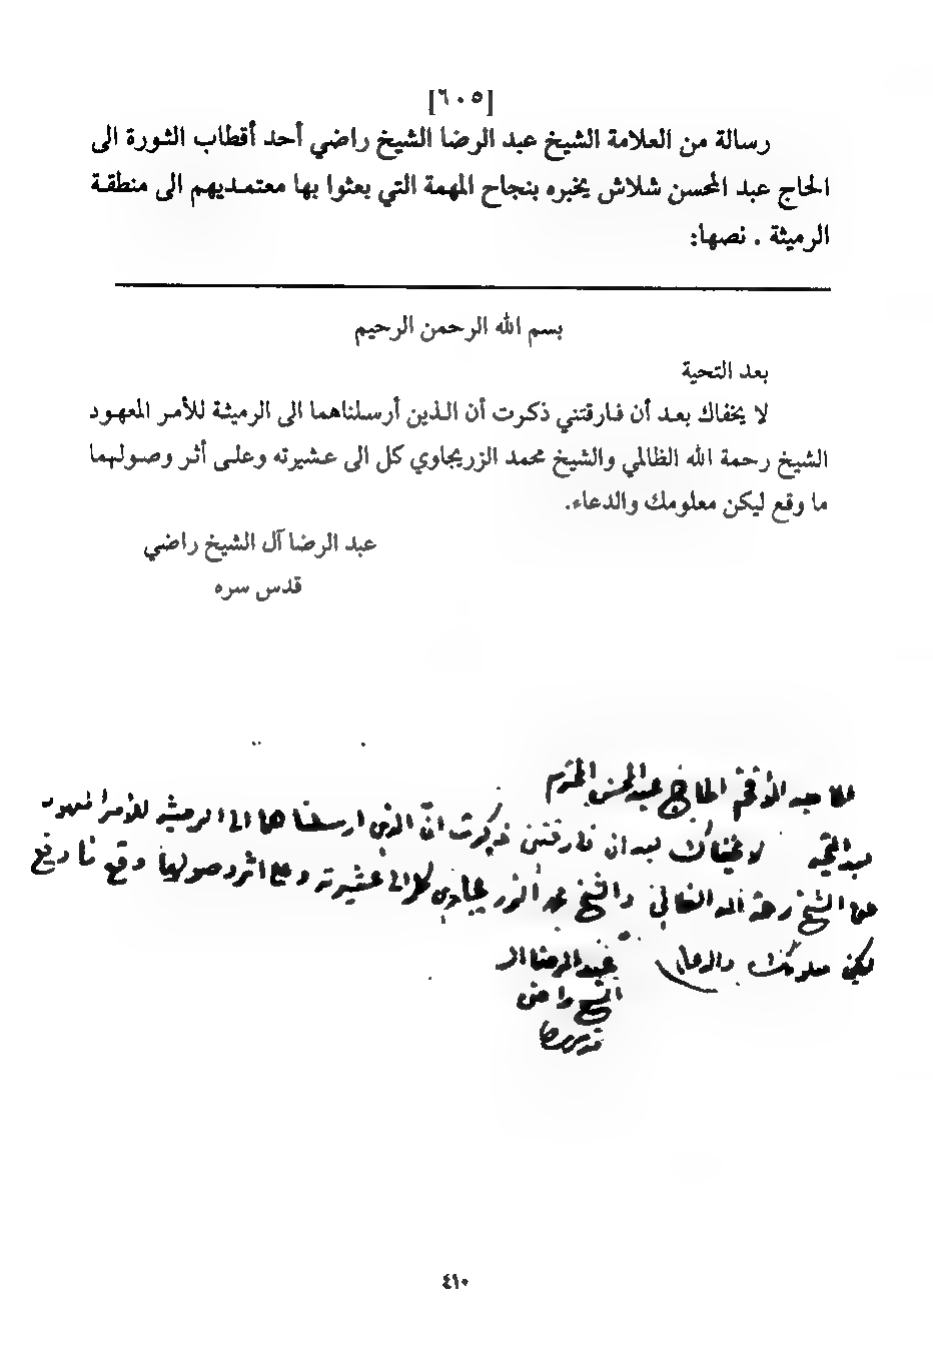 [٦٠٥]
رسالة من العلامة الشيخ عبد الرضا الشيخ راضي أحد أقطاب الثورة الى
الحاج عبد المحسن شلاش يخبره بنجاح المهمة التي بعثوا بها معتمديهم الى منطقة
الرميثة . نصها:
بسم الله الرحمن الرحيم
بعد التحية
لا يخفاك بعد أن فارقتني ذكرت أن الذين أرسلناهما الى الرميثة للأمر المعهود
الشيخ رحمة الله الظالمي والشيخ محمد الزريجاوي كل الى عشيرته وعلى أثر وصولهما
ما وقع ليكن معلومك والدعاء.
عبد الرضا آل الشيخ راضي
قدس سره
الافخم الحاج عبد المحسن المحترم
بعد التحية لا يخفاك بعد ان فارقتني ذكرت ان الذين ارسلناهما الى الرميثه للأمر المعهود
هما الشيخ رحمة الله الظالمي والشيخ محمد الزريجاوي كل الى عشيرته وعلى اثر وصولهما وقع ما وقع
ليكن معلومك والدعاء
عبد الرضا ال
الشيخ راضي
قدس سره
٤١٠